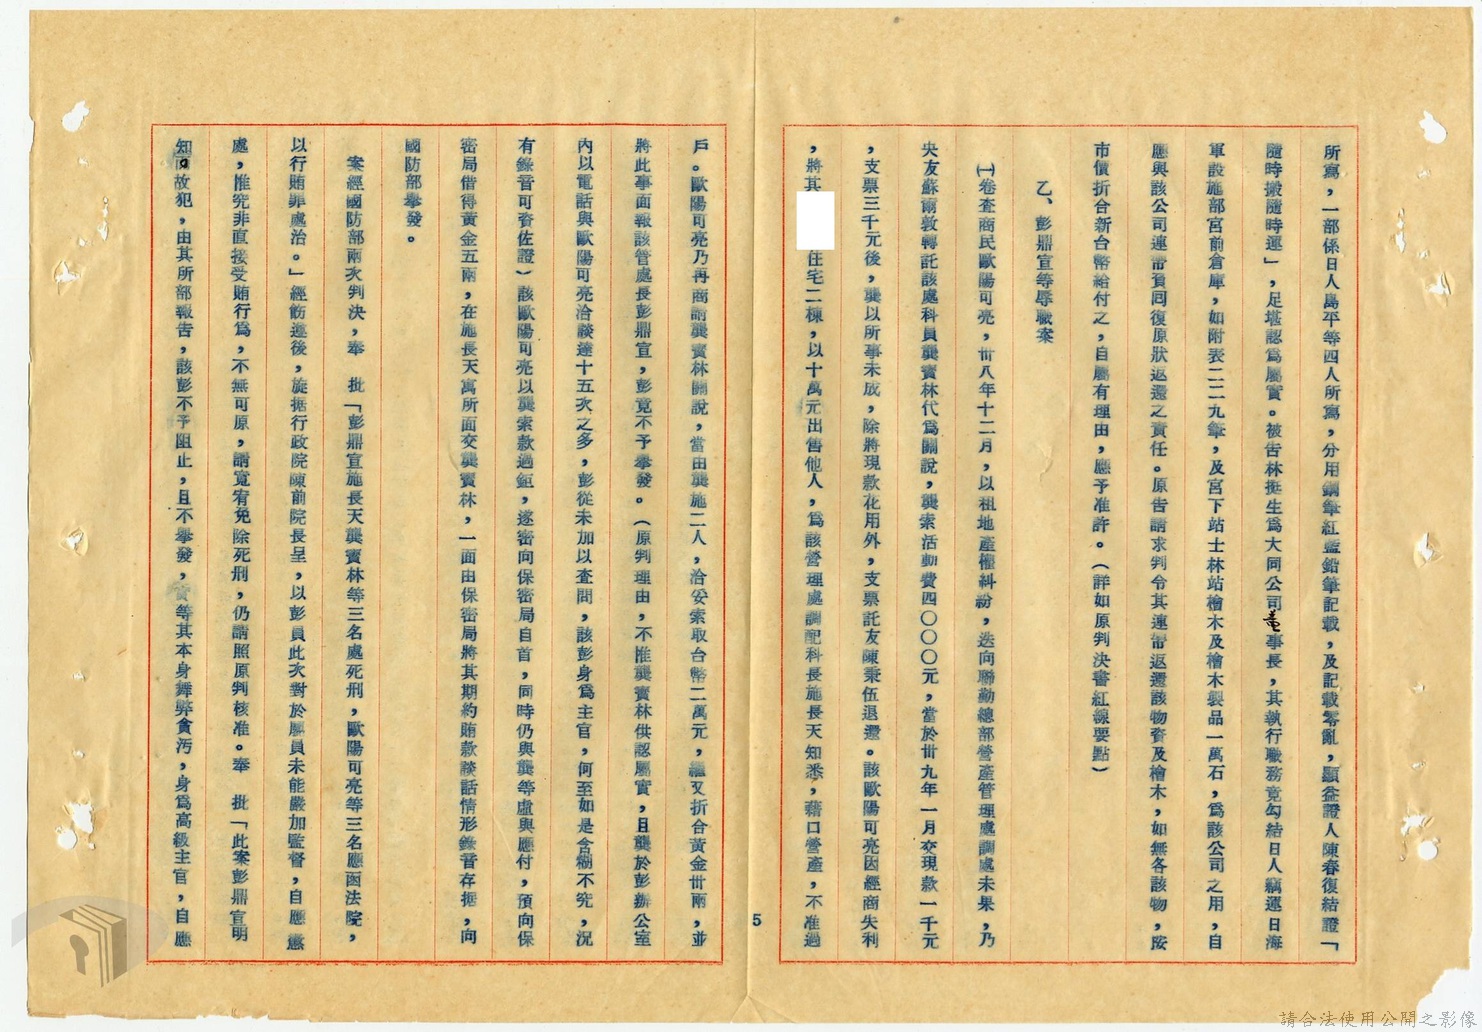 所寫，一部係日人島平等四人所寫，分用鋼筆紅藍鉛筆記載，及記載零亂，顯益證人陳春復結證「
隨時搬隨時運」，足堪認為屬實。被告林挺生為大同公司董事長，其執行職務竟勾結日人竊運日海
軍設施部宮前倉庫，如附表二二九筆，及宮下站士林站檜木及檜木製品一萬石，為該公司之用，自
應與該公司連帶負回復原狀返還之責任。原告請求判令其連帶返還該物資及檜木，如無各該物，按
市價折合新台幣給付之，自屬有理由，應予准許。（詳如原判決書紅線要點）
乙、彭鼎宣等辱職案
㈠卷查商民歐陽可亮，卅八年十二月，以租地產權糾紛，迭向聯勤總部營產管理處調處未果，乃
央友蘇雨敦轉託該處科員龔寶林代為關說，龔索活動費四〇〇〇元，當於卅九年一月交現款一千元
，支票三千元後，龔以所事未成，除將現款花用外，支票託友陳秉伍退還。該歐陽可亮因經商失利
，將其住宅二棟，以十萬元出售他人，為該營理處調配科長施長天知悉，藉口營產，不准過
5
戶。歐陽可亮乃再商請龔寶林關說，當由龔施二人，洽妥索取台幣二萬元，繼又折合黃金卅兩，並
將此事面報該管處長彭鼎宣，彭竟不予舉發。（原判理由，不惟龔寶林供認屬實，且龔於彭辦公室
內以電話與歐陽可亮洽談達十五次之多，彭從未加以查問，該彭身為主官，何至如是含糊不究，況
有錄音可資佐證）該歐陽可亮以龔索款過鉅，遂密向保密局自首，同時仍與龔等虛與應付，預向保
密局借得黃金五兩，在施長天寓所面交龔寶林，一面由保密局將其期約賄款談話情形錄音存据，向
國防部舉發。
案經國防部兩次判決，奉　批「彭鼎宣施長天龔寶林等三名處死刑，歐陽可亮等三名應函法院，
以行賄罪處治。」經飭遵後，旋据行政院陳前院長呈，以彭員此次對於屬員未能嚴加監督，自應懲
處，惟究非直接受賄行為，不無可原，請寬宥免除死刑，仍請照原判核准。奉　批「此案彭鼎宣明
知故犯，由其所部報告，該彭不予阻止，且不舉發，實等其本身舞弊貪污，身為高級主官，自應
請合法使用公開之影像